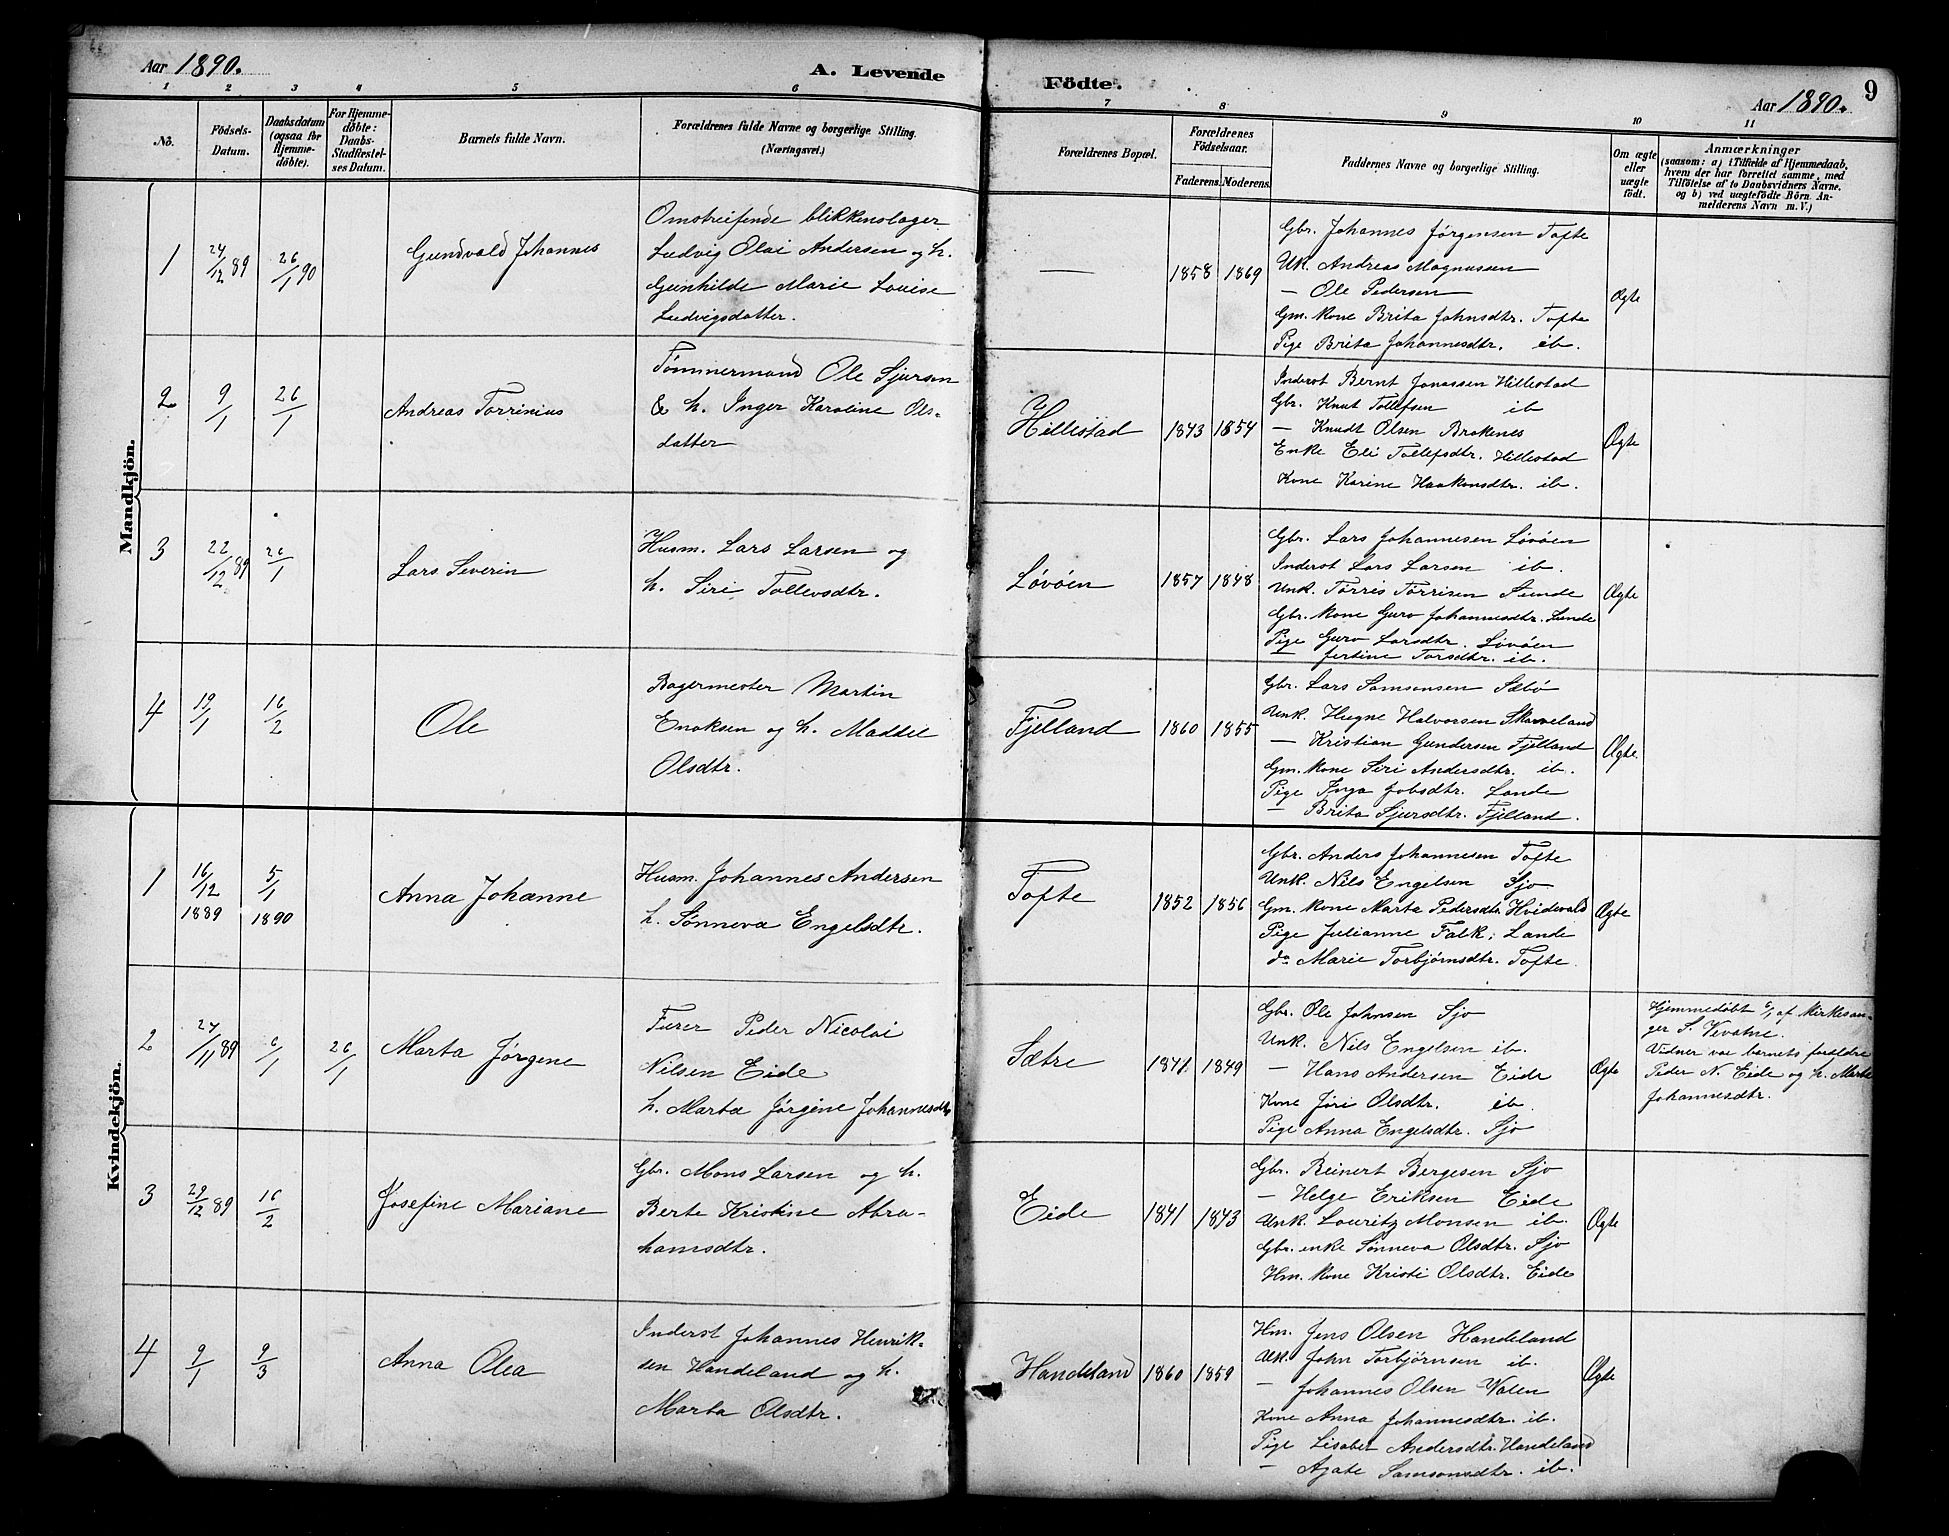 Aar 1890.
A. Levende
Födte.
Aar 1890.
9
1 2 3 4 5 6 7 8 9 10 11
No.
Födsels-
Datum.
Daabsdatum
(ogsaa for
Hjemme-
døbte).
For Hjemme-
døbte:
Daabs-
Stadfæstel-
ses Datum.
Barnets fulde Navn.
Forældrenes fulde Navne og borgerlige Stilling.
(Næringsvei.)
Forældrenes Bopæl.
Forældrenes
Födselsaar.
Faderens. Moderens.
Faddernes Navne og borgerlige Stilling.
Om ægte
eller
uægte
födt.
Anmærkninger
(saasom: a) i Tilfælde af Hjemmedaab,
hvem der har forrettet samme, med
Tilföielse af to Daabsvidners Navne,
og b) ved uægtefödte Börn An-
melderens Navn m. V.)
Mandkjön.
1
24/12 89
26/1 90
Gundvald Johannes
Omstreifende blikkenslager
Ludvig Olai Andersen og h.
Gunhilde Marie Louise
Ludvigsdatter.
—
1858 1869
Gbr. Johannes Jørgensen Tofte
Uk. Andreas Magnussen
— Ole Pedersen
Gm. Kone Brita Johnsdtr. Tofte
Pige Brita Johannesdtr. ib.
Ægte
2
9/1
26/1
Andreas Torrinius
Tømmermand Ole Sjursen
& h. Inger Karoline Ols-
datter
Hillestad
1843 1854
Inderst Bernt Jonassen Hillestad
Gbr. Knut Tollefsen ib
— Knudt Olsen Brakenes
Enke Eli Tollefsdtr. Hillestad
Kone Karine Haakonsdtr. ib.
Ægte
3
22/12 89
26/1
Lars Severin
Husm. Lars Larsen og
h. Siri Tollevsdtr.
Løvøen
1857 1848
Gbr. Lars Johannesen Løvøen
Inderst Lars Larsen ib.
Unk. Tørris Tørrisen Sunde
Gbr. Kone Guro Johannesdtr. Sunde
Pige Guro Larsdtr. Løvøen
— Jertine Torsdtr. ib.
Ægte
4
19/1
16/2
Ole
Bagermester Martin
Enoksen og h. Maddel
Olsdtr.
Fjelland
1860 1855
Gbr. Lars Samsonsen Sæbø
Unk. Hugne Halvorsen Skarveland
— Kristian Gundersen Fjelland
Gm. Kone Siri Andersdtr. ib.
Pige Inga Jobsdtr. Lande
— Brita Sjursdtr. Fjelland.
Ægte.
Kvindekjön.
1
16/12
1889
5/1
1890
Anna Johanne
Husm. Johannes Andersen
h. Sønneva Engelsdtr.
Tofte
1852 1856
Gbr. Anders Johannesen Tofte
Unk. Nils Engelsen Sjo
Gm. Kone Marta Pedersdtr. Hvidevold
Pige Julianne Falk, Lande
do Marie Torbjørnsdtr. Tofte.
Ægte
2
24/11 89
6/1
26/1
Marta Jørgene
Furer Peder Nicolai
Nilsen Eide
h. Marta Jørgine Johannesdtr
Sætre
1841. 1849
Gbr. Ole Johnsen Sjo
Unk. Nils Engelsen ib.
— Hans Andersen Eide
Kone Jøri Olsdtr. ib.
Pige Anna Engelsdtr. Sjo
Ægte
Hjemmedøbt 6/1 af Kirkesan-
ger S. Vevatne.
Vidner var barnets forældre
Peder N. Eide og h. Marta
Johannesdtr.
3
29/12 89
16/2
Josefine Mariane
Gbr. Mons Larsen og h.
Berte Kristine Abra-
hamsdtr.
Eide
1841 1843
Gbr. Reinert Bergesen Sjo
— Helge Eriksen Eide
Unk. Lauritz Monsen ib.
Gbr. enke Sønneva Olsdtr. Sjo
Hm. Kone Kristi Olsdtr. Eide
Ægte
4
9/1
9/3
Anna Olea
Inderst Johannes Henrik-
sen Handeland og h.
Marta Olsdtr.
Handeland
1860 1859
Hm. Jens Olsen Handeland
Uk. John Torbjørnsen ib.
— Johannes Olsen Valen
Kone Anna Johannesdtr. ib.
Pige Lisabet Andersdtr. Handeland
— Agate Samsonsdtr. ib.
Ægte